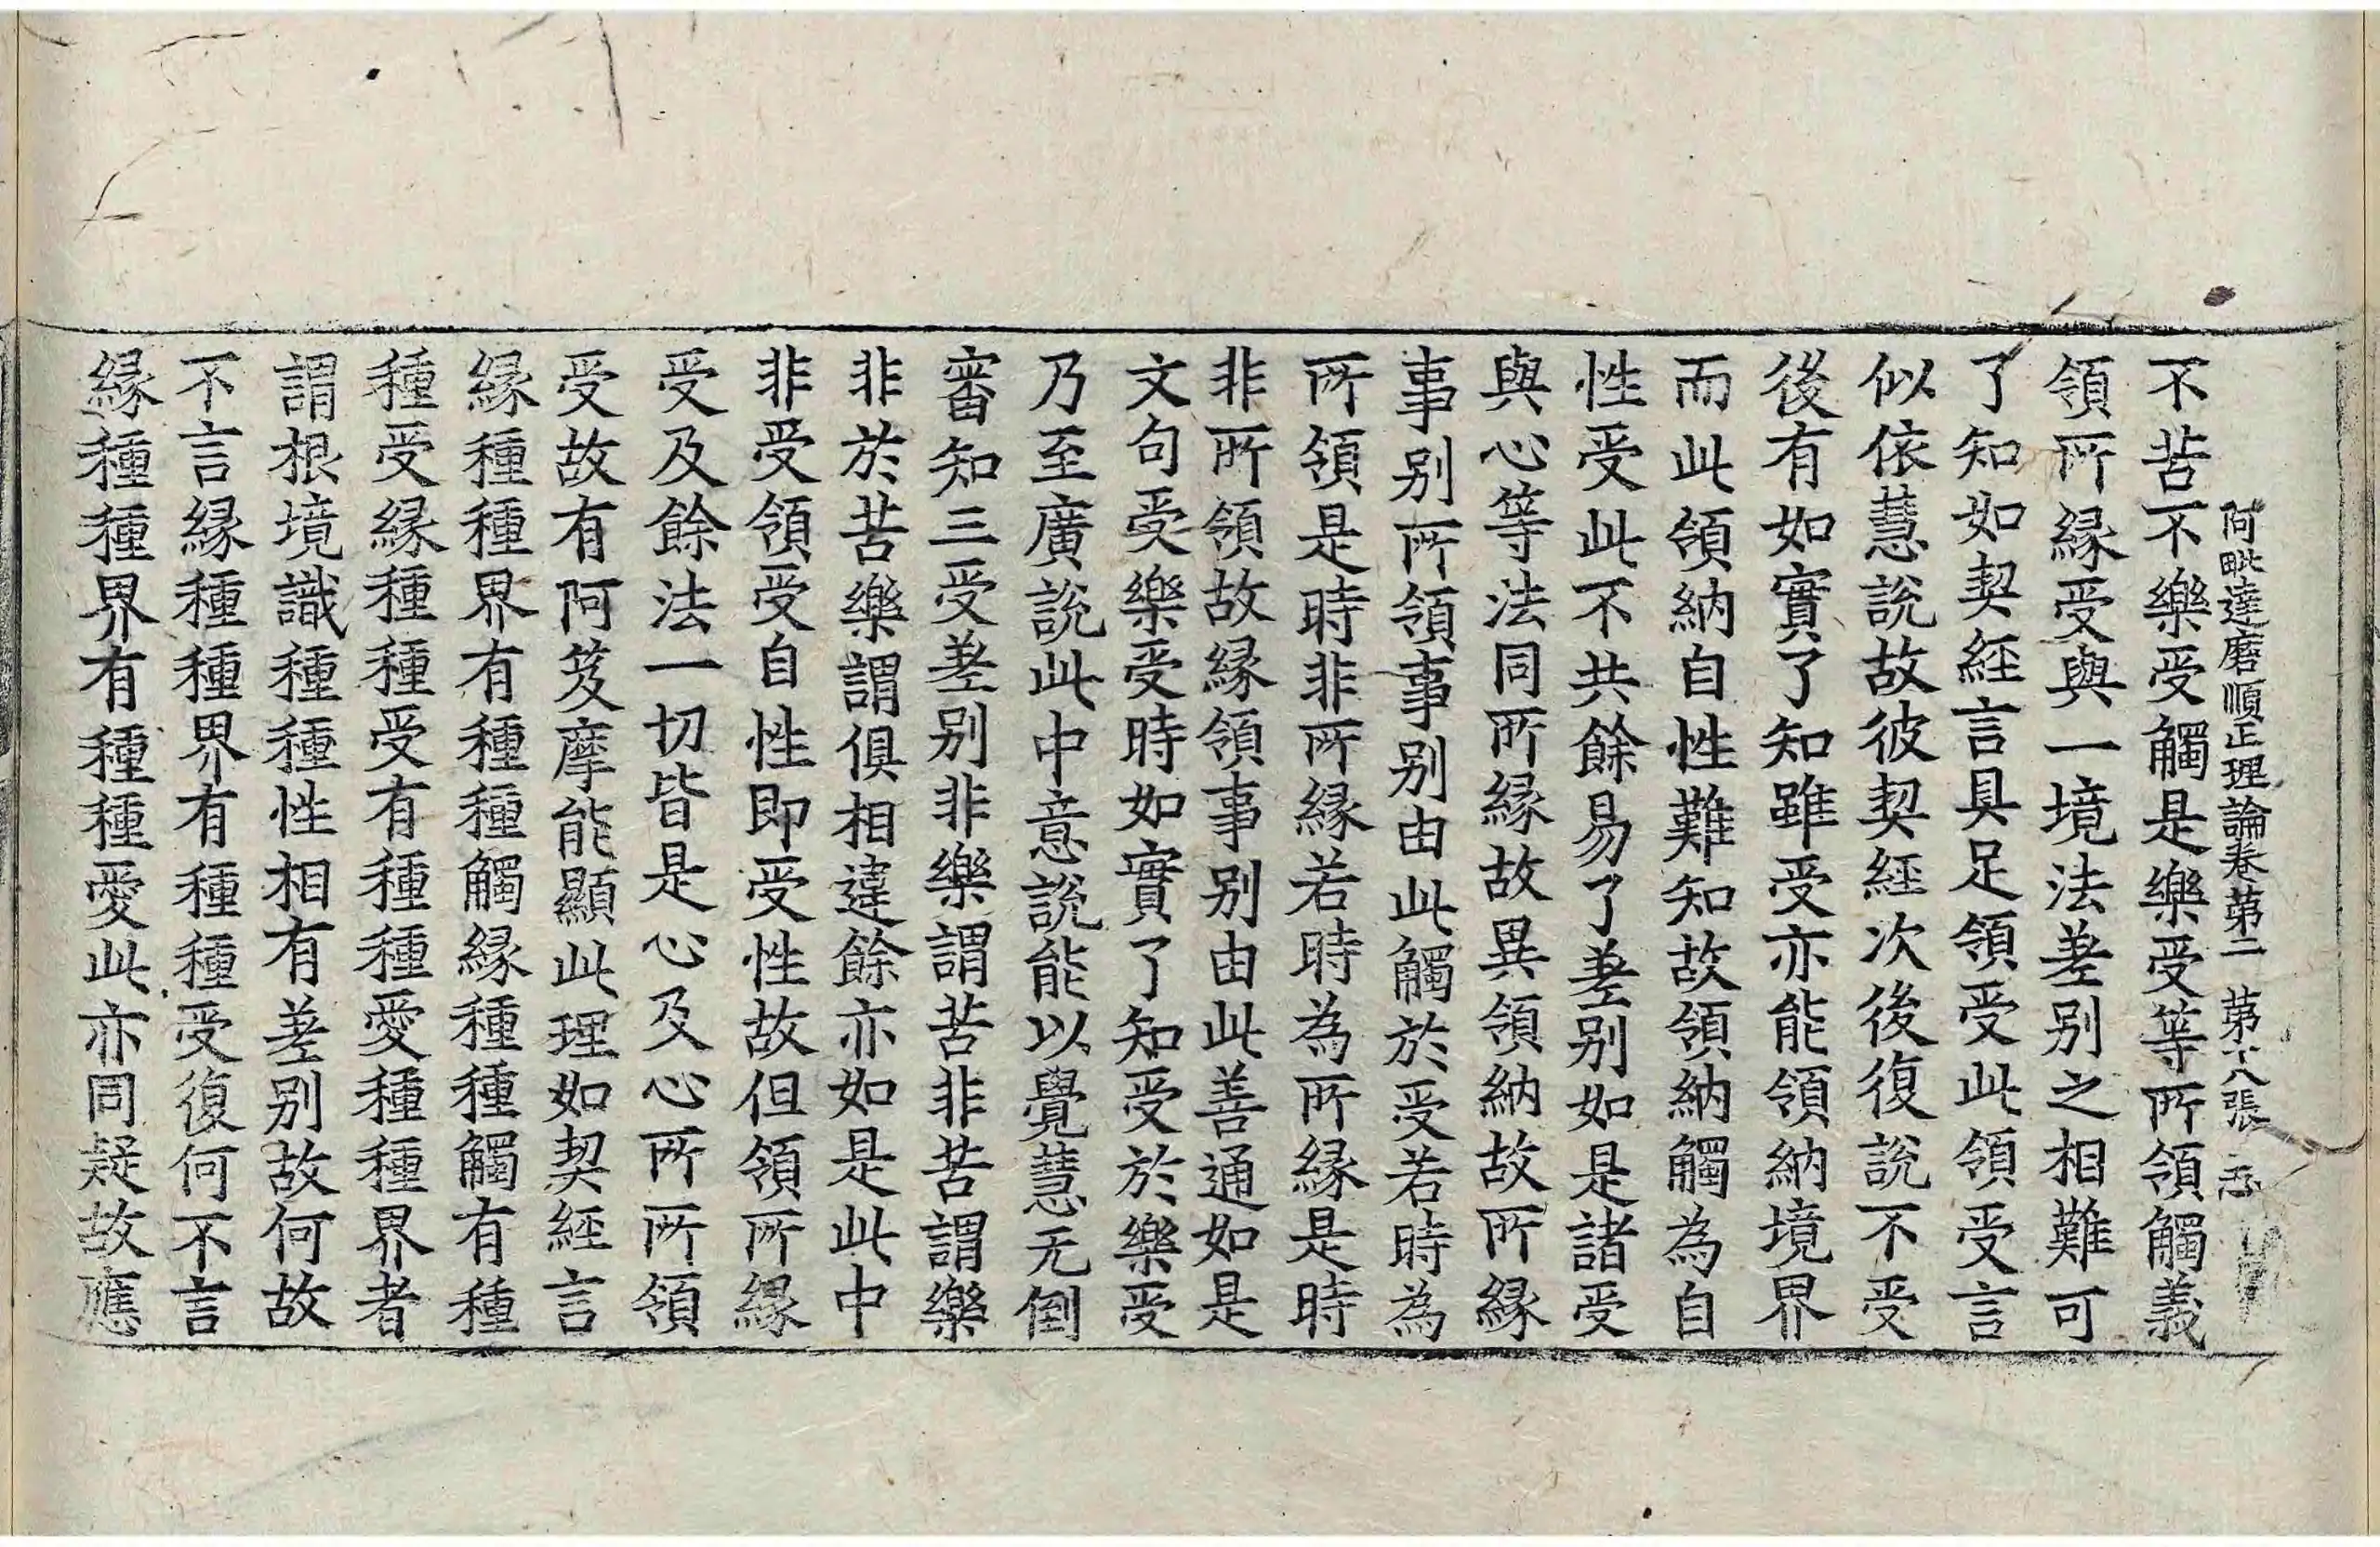 阿毗達磨順正理論卷苐二　苐十八張
不苦不樂受觸是樂受等所領觸義
領所緣受與一境法差別之相難可
了知如契經言具足領受此領受言
似依慧說故彼契經次後復說不受
後有如實了知雖受亦能領納境界
而此領納自性難知故領納觸為自
性受此不共餘易了差別如是諸受
與心等法同所緣故異領納故所緣
事別所領事別由此觸於受若時為
所領是時非所緣若時為所緣是時
非所領故緣領事別由此善通如是
文句受樂受時如實了知受於樂受
乃至廣說此中意說能以覺慧无倒
審知三受差別非樂謂苦非苦謂樂
非於苦樂謂俱相違餘亦如是此中
非受領受自性即受性故但領所緣
受及餘法一切皆是心及心所所領
受故有阿笈摩能顯此理如契經言
緣種種界有種種觸緣種種觸有種
種受緣種種受有種種愛種種界者
謂根境識種種性相有差別故何故
不言緣種種界有種種受復何不言
緣種種界有種種愛此亦同疑故應